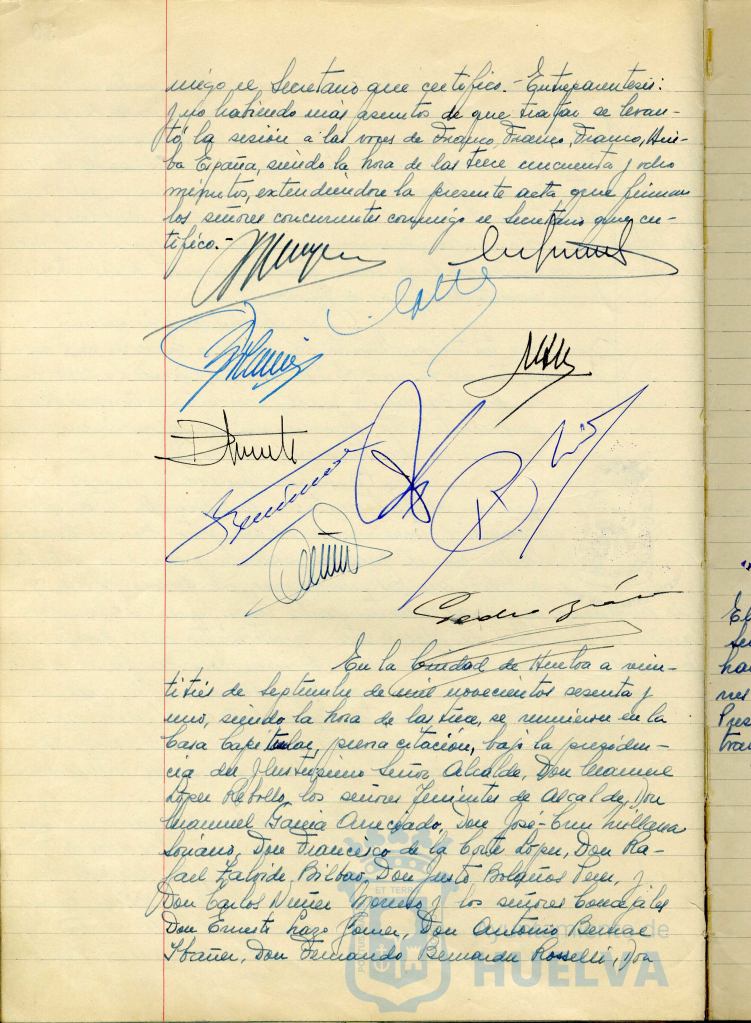 migo el Secretario que certifico.- Entreparentesis:
y no habiendo más asuntos de que tratar se levan-
tó la sesión a las voces de Franco, Franco, Franco, Arri-
ba España, siendo la hora de las trece cincuenta y ocho
minutos, extendiendose la presente acta que firman
los señores concurrentes conmigo el Secretario que cer-
tifico.-
Pedro
En la Ciudad de Huelva a vein-
titrés de Septiembre de mil novecientos sesenta y
uno, siendo la hora de las trece, se reunieron en la
Casa Capitular, previa citación, bajo la presiden-
cia del Ilustrísimo Señor Alcalde, Don Manuel
López Rebollo, los señores Tenientes de Alcalde, Don
Manuel García Don José-Cruz Millana
Soriano, Don Francisco de la Corte López, Don Ra-
fael Bilbao, Don Justo Bolaños y
Don Carlos Núñez Moreno y los señores Concejales
Don Ernesto Lazo Don Antonio Bernal
Ibáñez, Don Fernando Bernardez Rosselli, Don
ET TERRÆ
Ayuntamiento de
HUELVA
El
ha
nes
Pres
tran